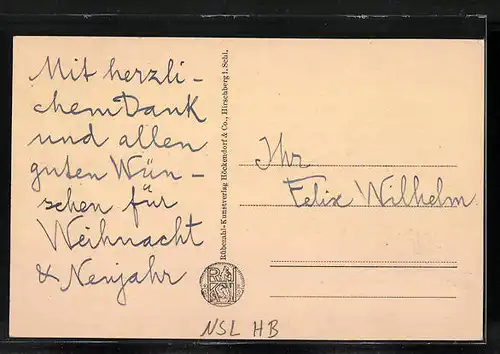 Mit herzli-
chem Dank
und allen
guten Wün-
schen für
Weihnacht
& Neujahr
Rübezahl-Kunstverlag Höckendorf & Co., Hirschberg i. Schl.
Ihr
Felix Wilhelm.
NSL HB